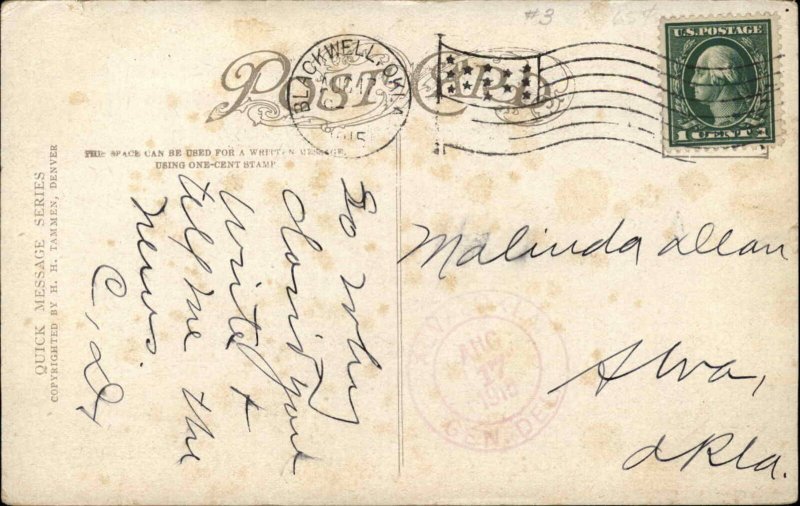 #3
POST CARD
BLACKWELL, OKLA
U.S. POSTAGE
1 CENT 1
THIS SPACE CAN BE USED FOR A WRITTEN MESSAGE,
USING ONE-CENT STAMP
QUICK MESSAGE SERIES
COPYRIGHTED BY H. H. TAMMEN, DENVER
So why
don't you
write &
tell me the
news.
C, D,
Malinda Dean
Alva,
Okla.
ALVA, OKLA.
AUG
17
1915
GEN. DEL.